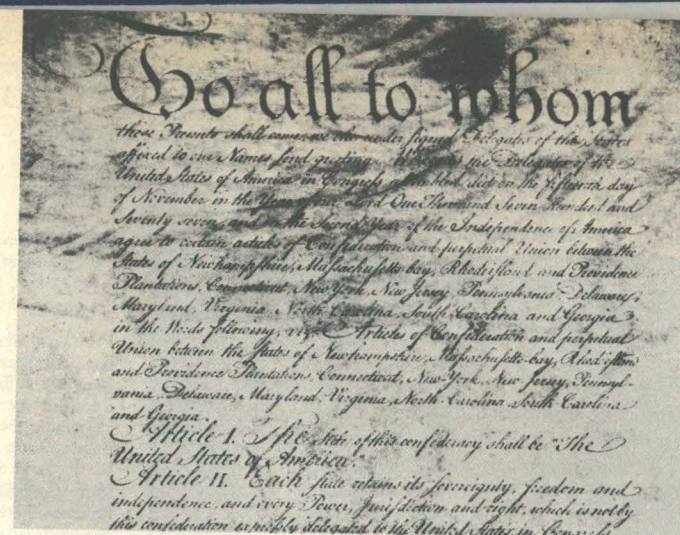 To all to whom
these Presents shall come, we the under signed Delegates of the States
affixed to our Names send greeting. Whereas the Delegates of the
United States of America in Congress assembled did on the fifteenth day
of November in the Year of our Lord One Thousand Seven Hundred and
Seventy seven, and in the Second Year of the Independence of America
agree to certain articles of Confederation and perpetual Union between the
States of Newhampshire, Massachusetts-bay, Rhodeisland and Providence
Plantations, Connecticut, New York, New Jersey, Pennsylvania, Delaware,
Maryland, Virginia, North-Carolina, South-Carolina and Georgia
in the Words following, viz. Articles of Confederation and perpetual
Union between the States of Newhampshire, Massachusetts-bay, Rhodeisland
and Providence Plantations, Connecticut, New-York, New-Jersey, Pennsyl-
vania, Delaware, Maryland, Virginia, North-Carolina, South-Carolina
and Georgia.
Article I. The Stile of this confederacy shall be "The
United States of America."
Article II. Each state retains its sovereignty, freedom and
independence, and every Power, Jurisdiction and right, which is not by
this confederation expressly delegated to the United States, in Congress